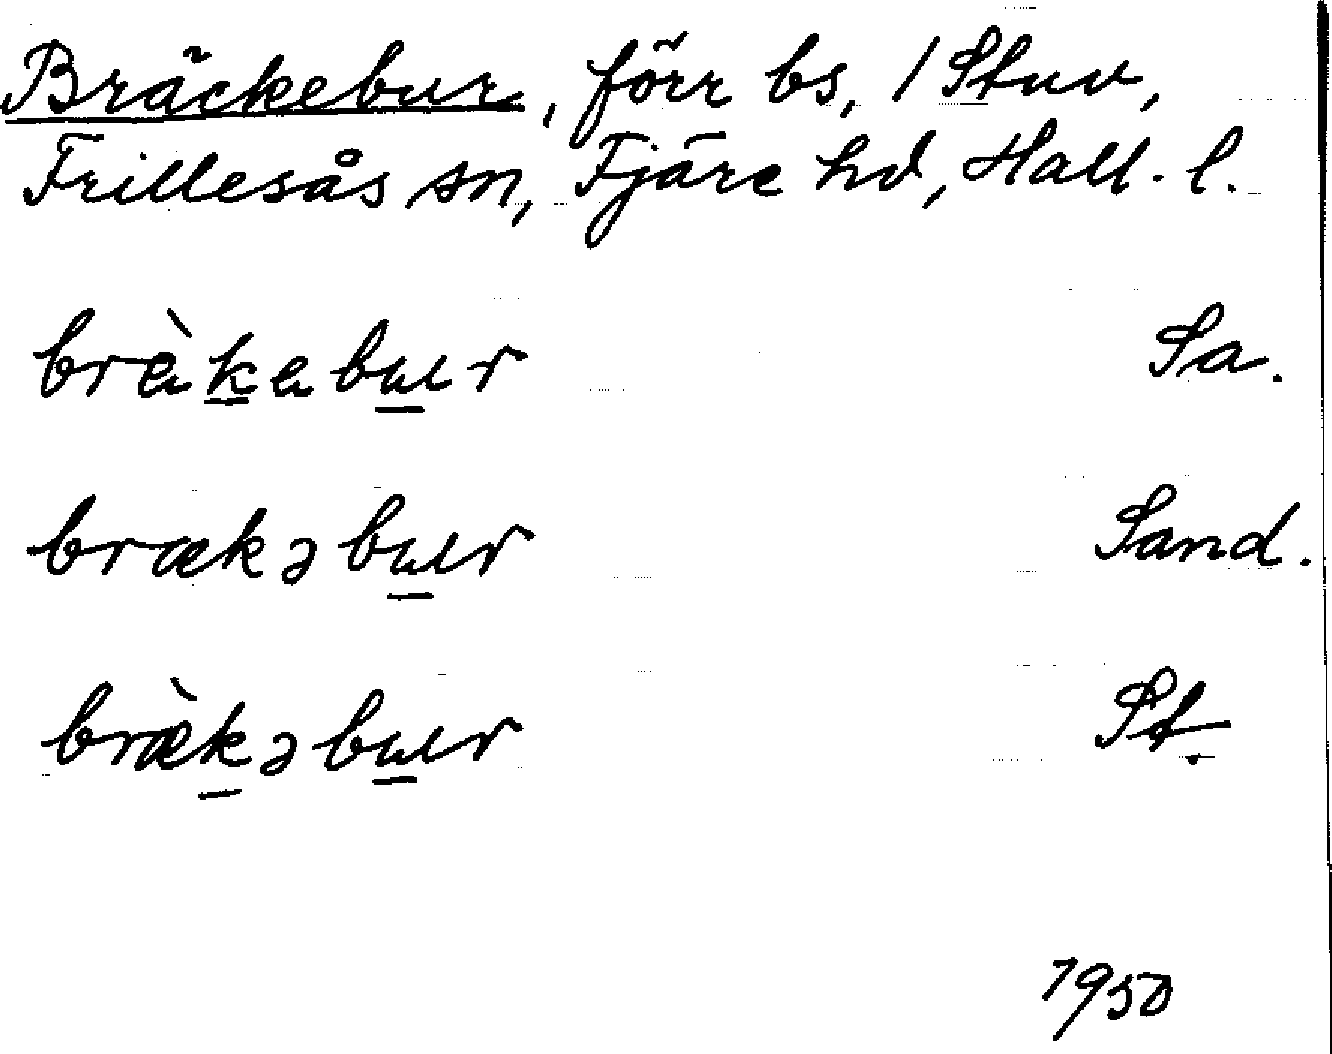 Bräckebur, förr bs, 1 Stuv,
Frillesås sn, Fjäre hd, Hall. l.
bràkabur Sa.
brækəbur Sand.
bræ̀kəbur St.
1950